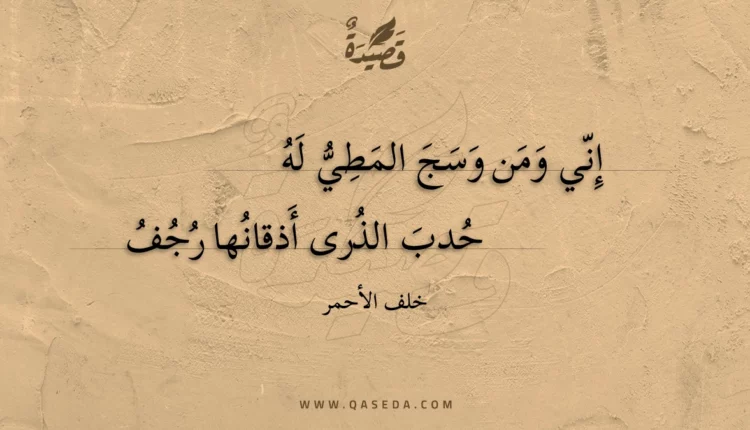 قَصِيدَةٌ
إِنّي وَمَن وَسَجَ المَطِيُّ لَهُ
حُدبَ الذُرى أَذقانُها رُجُفُ
خلف الأحمر
WWW.QASEDA.COM